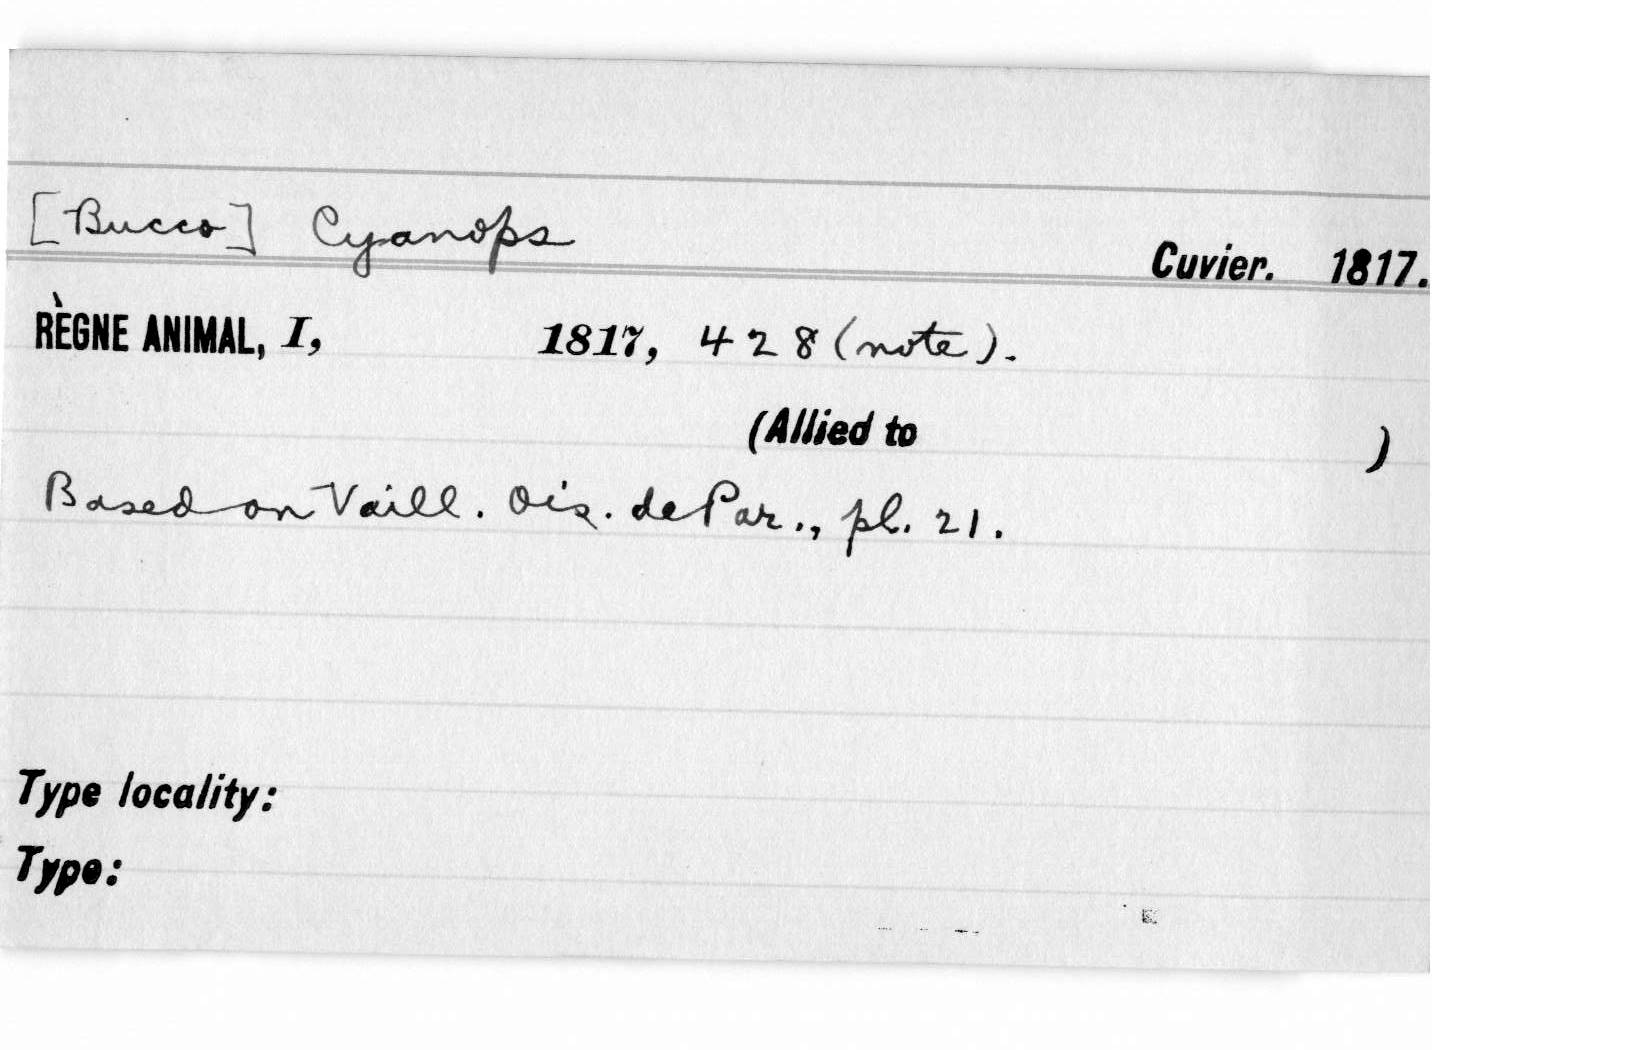 [Bucco] Cyanops
Cuvier. 1817.
RÈGNE ANIMAL, I, 1817, 428 (note).
(Allied to )
Based on Vaill. Ois. de Par., pl. 21.
Type locality:
Type: